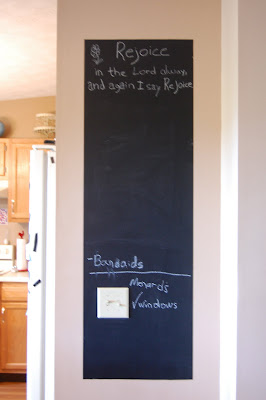 Rejoice
in the Lord always
and again I say Rejoice
-Bandaids
Menards
✓windows